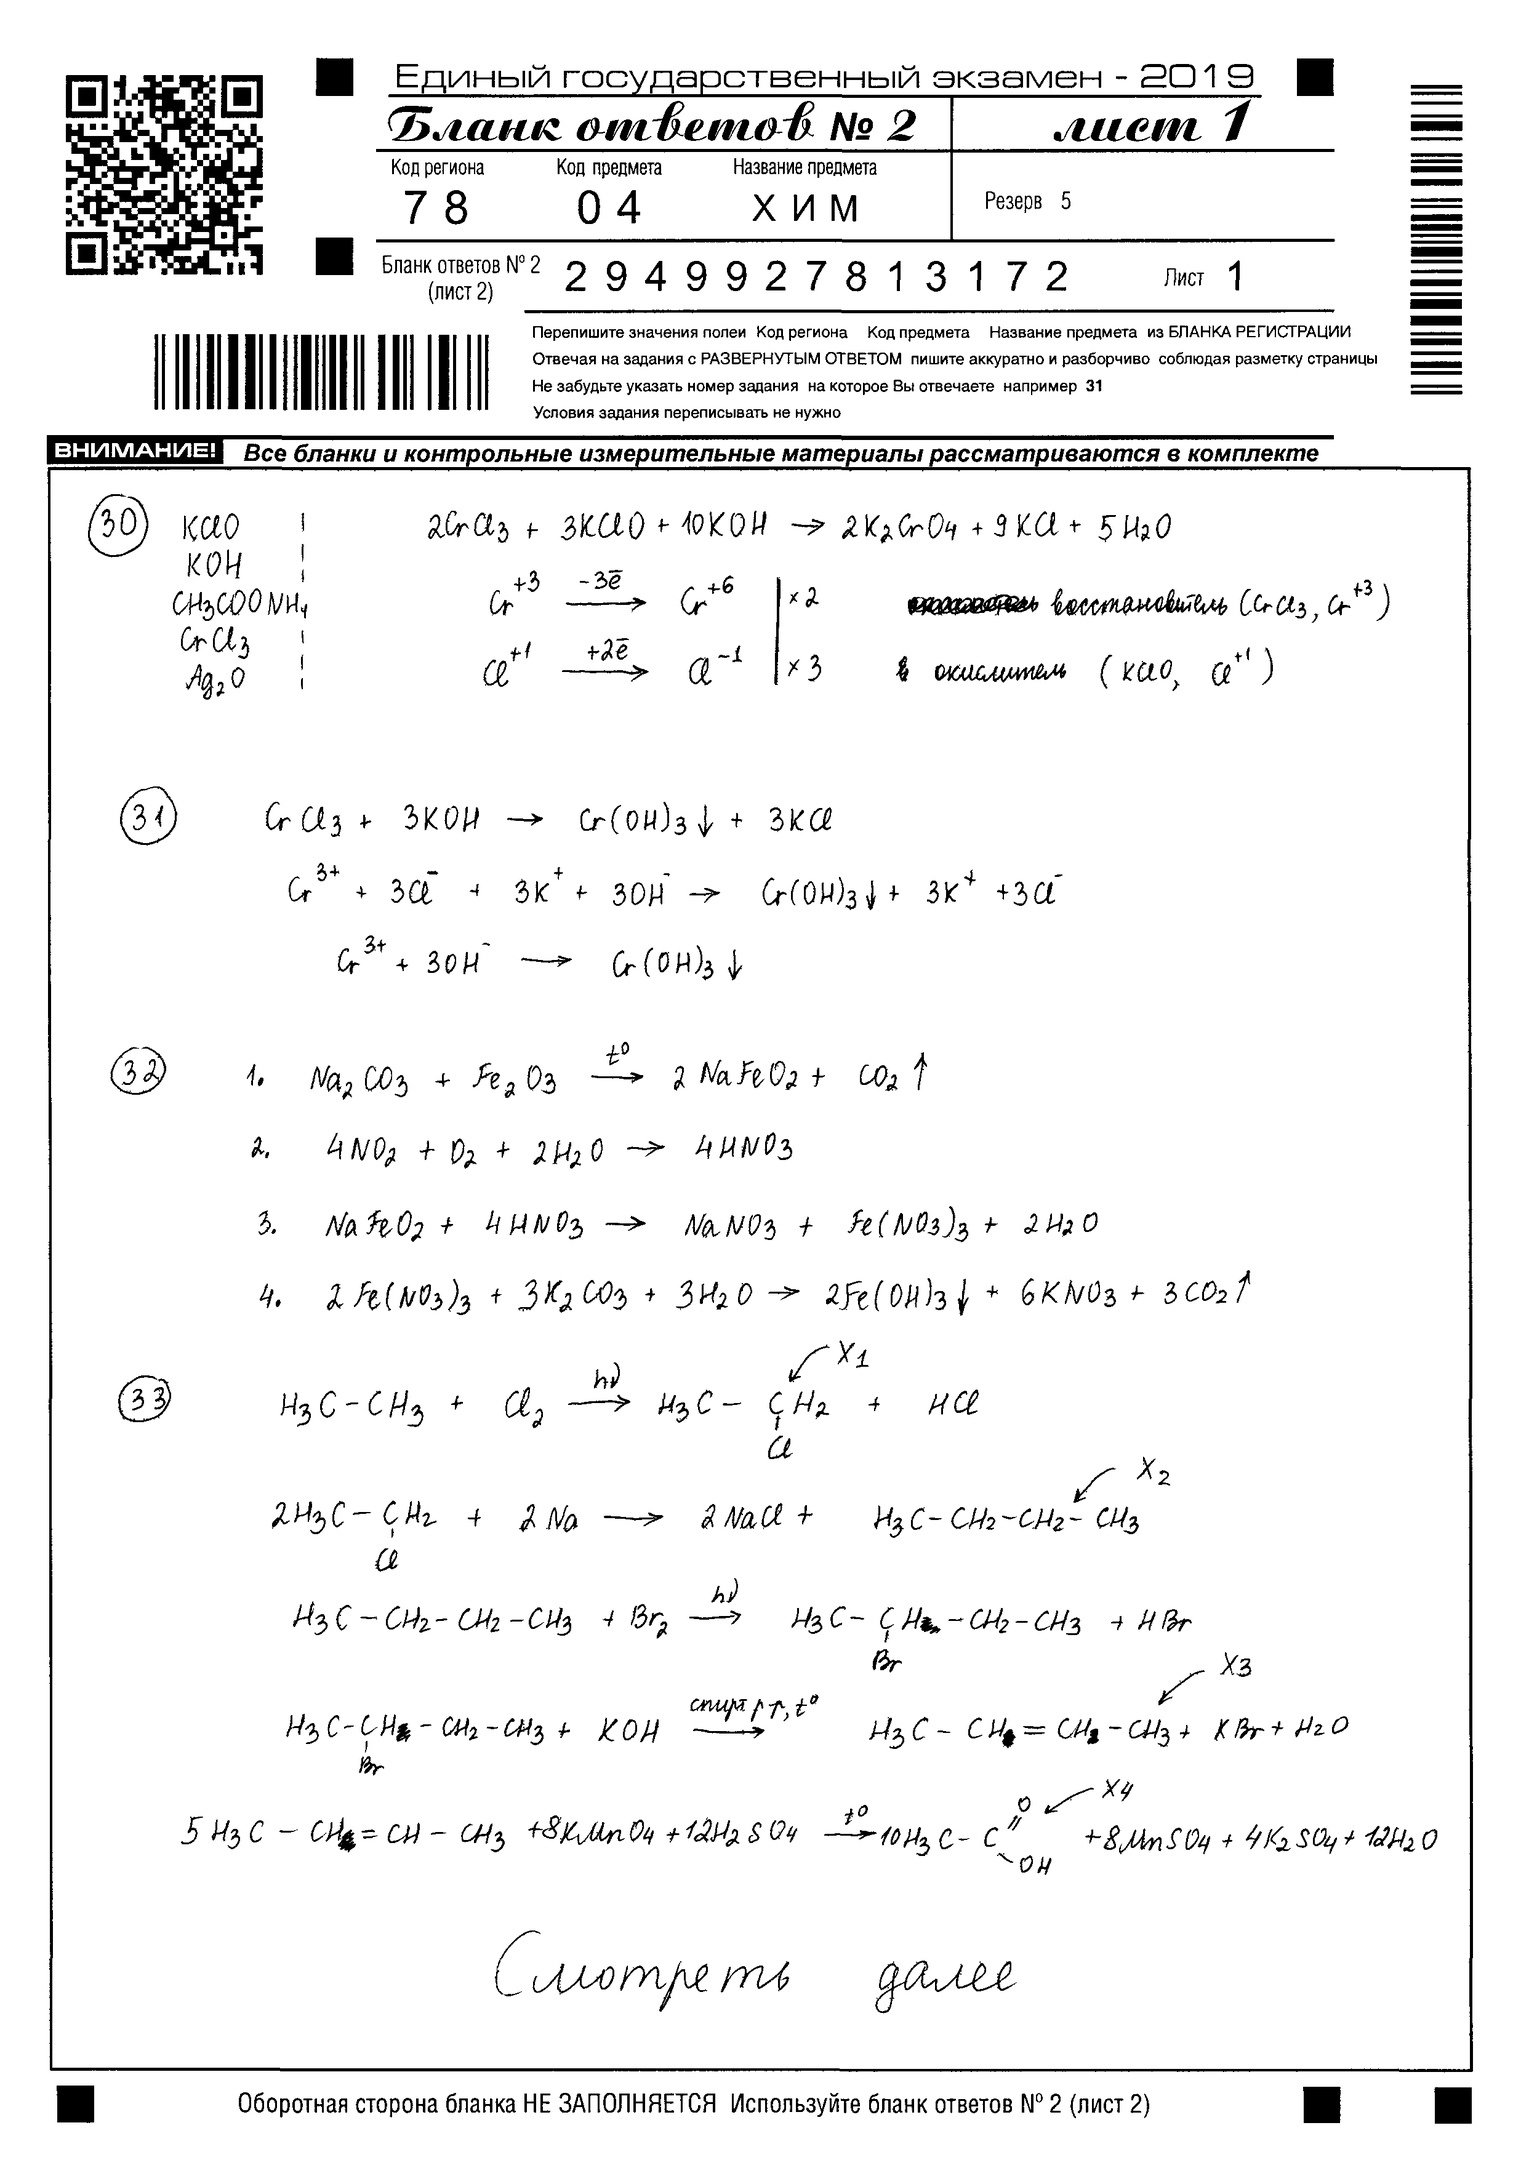 Единый государственный экзамен - 2019
Бланк ответов № 2 лист 1
Код региона Код предмета Название предмета
78 04 ХИМ Резерв 5
Бланк ответов № 2 (лист 2) 2949927813172 Лист 1
Перепишите значения полей Код региона Код предмета Название предмета из БЛАНКА РЕГИСТРАЦИИ
Отвечая на задания с РАЗВЕРНУТЫМ ОТВЕТОМ пишите аккуратно и разборчиво соблюдая разметку страницы
Не забудьте указать номер задания на которое Вы отвечаете например 31
Условия задания переписывать не нужно
ВНИМАНИЕ! Все бланки и контрольные измерительные материалы рассматриваются в комплекте
30 KClO 2CrCl3 + 3KClO + 10KOH → 2K2CrO4 + 9KCl + 5H2O
KOH
CH3COONH4 Cr+3 -3ē → Cr+6 | ×2 восстановитель (CrCl3, Cr+3)
CrCl3
Ag2O Cl+1 +2ē → Cl-1 | ×3 окислитель (KClO, Cl+1)
31 CrCl3 + 3KOH → Cr(OH)3↓ + 3KCl
Cr3+ + 3Cl- + 3K+ + 3OH- → Cr(OH)3↓ + 3K+ + 3Cl-
Cr3+ + 3OH- → Cr(OH)3↓
32 1. Na2CO3 + Fe2O3 t° → 2NaFeO2 + CO2↑
2. 4NO2 + O2 + 2H2O → 4HNO3
3. NaFeO2 + 4HNO3 → NaNO3 + Fe(NO3)3 + 2H2O
4. 2Fe(NO3)3 + 3K2CO3 + 3H2O → 2Fe(OH)3↓ + 6KNO3 + 3CO2↑
X1
33 H3C-CH3 + Cl2 hν → H3C-CH2 + HCl
Cl
X2
2H3C-CH2 + 2Na → 2NaCl + H3C-CH2-CH2-CH3
Cl
H3C-CH2-CH2-CH3 + Br2 hν → H3C-CH-CH2-CH3 + HBr
Br
X3
H3C-CH-CH2-CH3 + KOH спирт р-р, t° → H3C-CH=CH-CH3 + KBr + H2O
Br
X4
5H3C-CH=CH-CH3 + 8KMnO4 + 12H2SO4 t° → 10H3C-C=O + 8MnSO4 + 4K2SO4 + 12H2O
OH
Смотреть далее
Оборотная сторона бланка НЕ ЗАПОЛНЯЕТСЯ Используйте бланк ответов № 2 (лист 2)